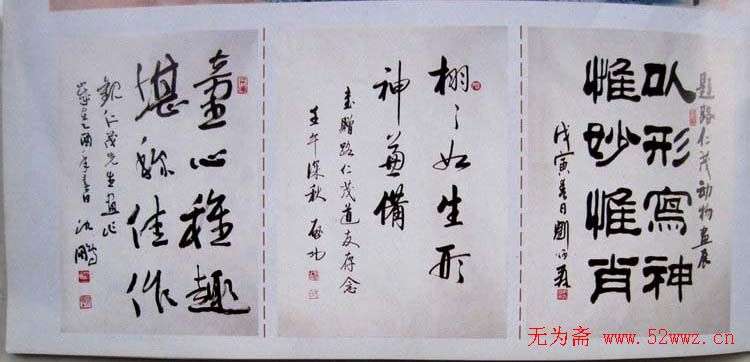 题路仁茂动物画展
以形寫神
惟妙惟肖
戊寅春日劉炳森
栩々如生形
神兼備
书贈路仁茂道友存念
壬午深秋 启功
童心稚趣
堪称佳作
觀仁茂先生画作
乙酉年春日 沈鹏
无为斋 www.52wwz.cn